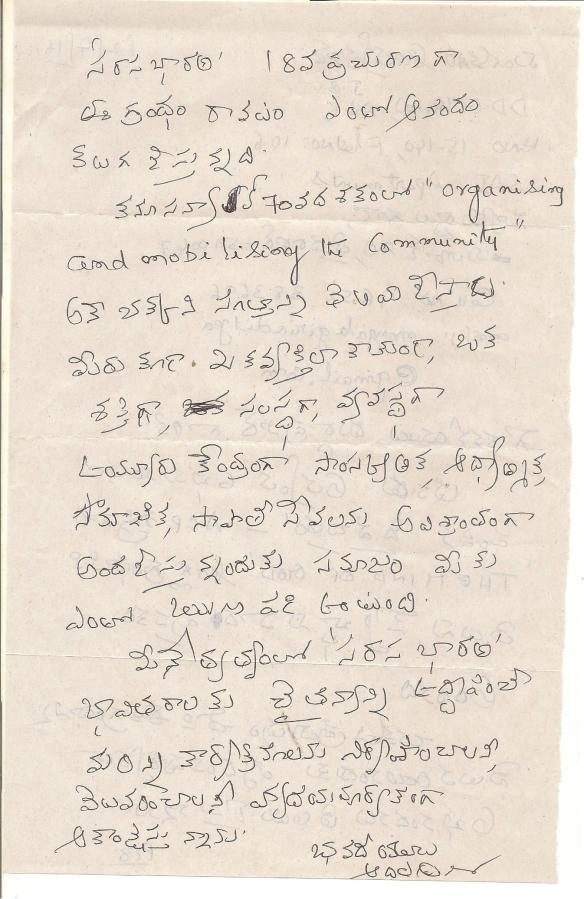 'సరస భారతి' 18వ ప్రచురణ గా
ఈ గ్రంథం రావటం ఎంతో ఆనందం
కలుగ జేస్తున్నది.
70వ దశకంలో "organising
and mobilising the Community"
అనే
మీరు కూడా ఒక వ్యక్తిలా కాకుండా, ఒక
శక్తిగా, సంస్థగా, వ్యవస్థగా
ఉయ్యూరు కేంద్రంగా సాంస్కృతిక ఆధ్యాత్మిక,
సామాజిక, సాహితీ సేవలను అవిశ్రాంతంగా
అందజేస్తున్నందుకు సమాజం మీకు
ఎంతో ఋణ పడి ఉంటుంది.
మీ నేతృత్వంలో 'సరస భారతి'
భావితరాలకు చైతన్యాన్ని ఉద్దీపించే
మరిన్ని కార్యక్రమాలను నిర్వహించాలని,
వెలువరించాలని హృదయపూర్వకంగా
ఆకాంక్షిస్తున్నాను.
భవదీయుడు